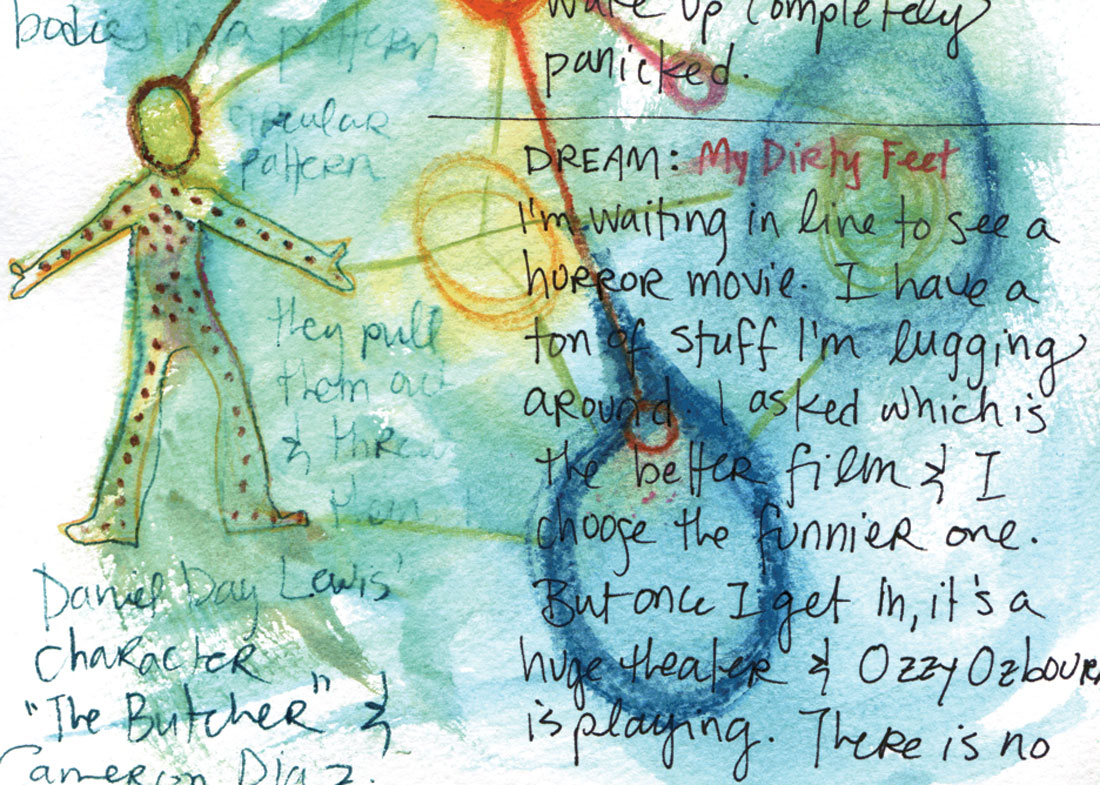 bodies in a pattern
circular
pattern
they pull
them out
& threw
them
Daniel Day Lewis'
character
"The Butcher" &
Cameron Diaz.
wake up completely
panicked.
DREAM: My Dirty Feet
I'm waiting in line to see a
horror movie. I have a
ton of stuff I'm lugging
around. I asked which is
the better film & I
choose the funnier one.
But once I get in, it's a
huge theater & Ozzy Ozbourn
is playing. There is no